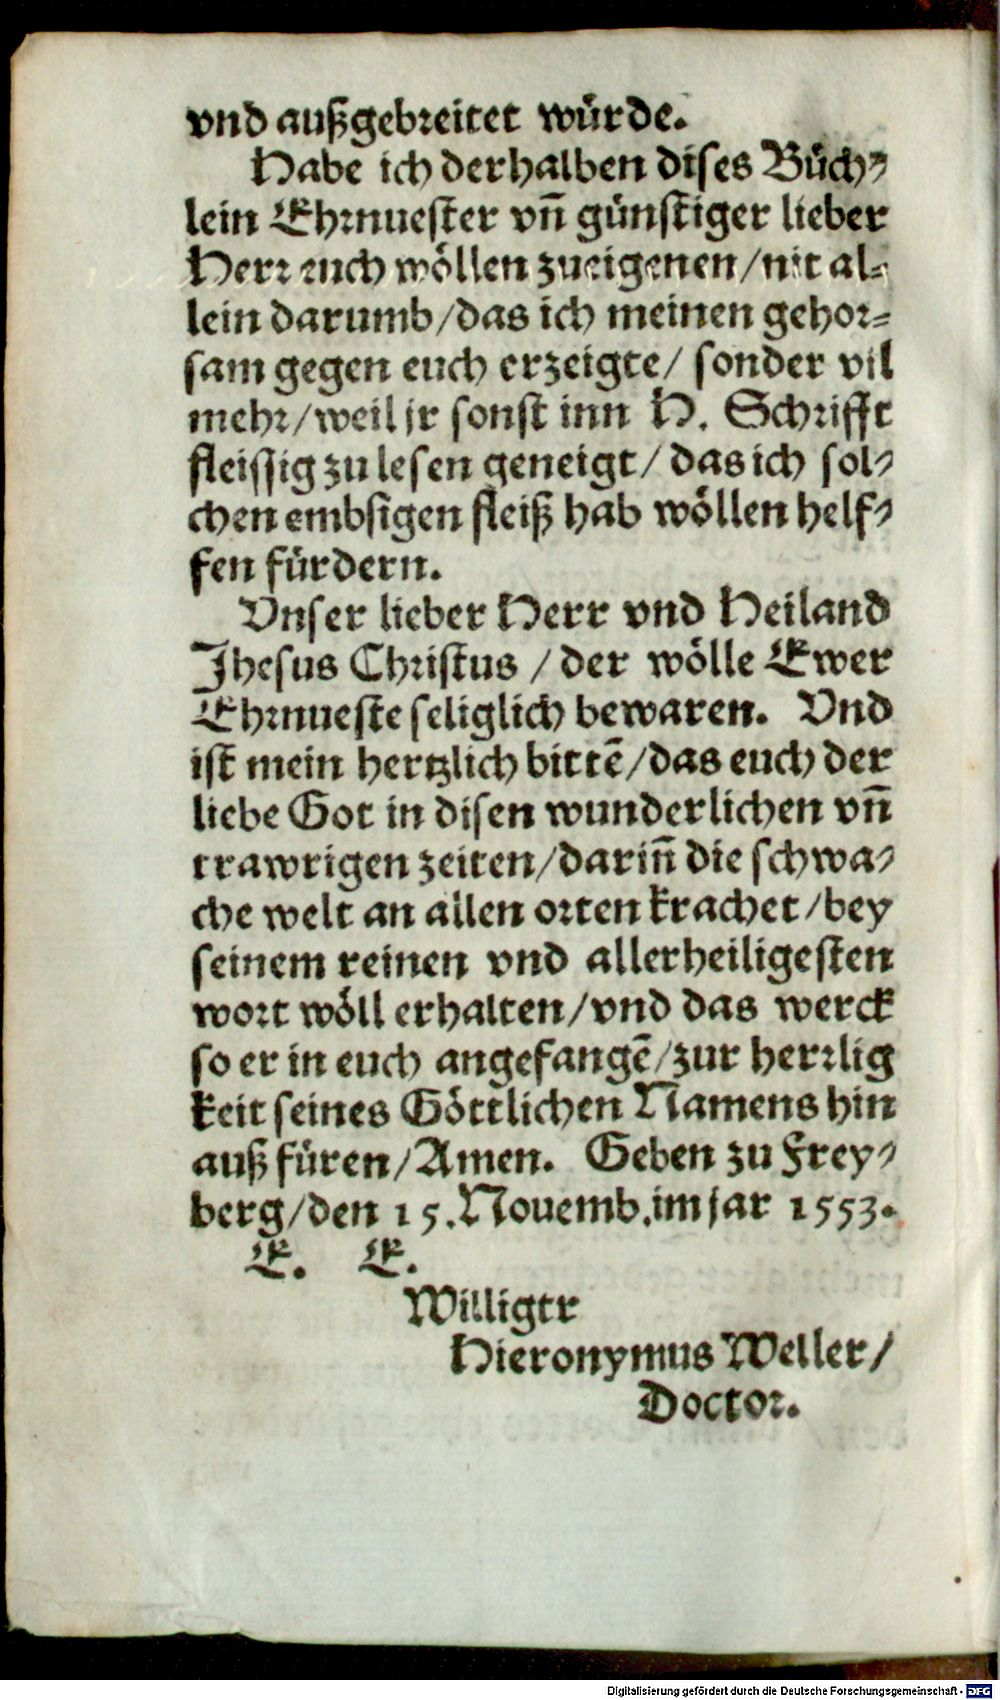 vnd außgebreitet würde.
Habe ich derhalben dises Büch-
lein Ehrnuester vn̄ günstiger lieber
Herr euch wöllen zueigenen/nit al-
lein darumb/das ich meinen gehor-
sam gegen euch erzeigte/ sonder vil
mehr/weil jr sonst inn H. Schrifft
fleissig zu lesen geneigt/ das ich sol-
chen embsigen fleiß hab wöllen helf-
fen fürdern.
Vnser lieber Herr vnd Heiland
Jhesus Christus / der wölle Ewer
Ehrnueste seliglich bewaren. Vnd
ist mein hertzlich bittē/das euch der
liebe Got in disen wunderlichen vn̄
trawrigen zeiten/darin̄ die schwa-
che welt an allen orten krachet/bey
seinem reinen vnd allerheiligesten
wort wöll erhalten/vnd das werck
so er in euch angefangē/zur herrlig
keit seines Göttlichen Namens hin
auß füren/Amen. Geben zu Frey-
berg/den 15.Nouemb.im jar 1553.
E. E.
Willigtr
Hieronymus Weller/
Doctor.
Digitalisierung gefördert durch die Deutsche Forschungsgemeinschaft - DFG